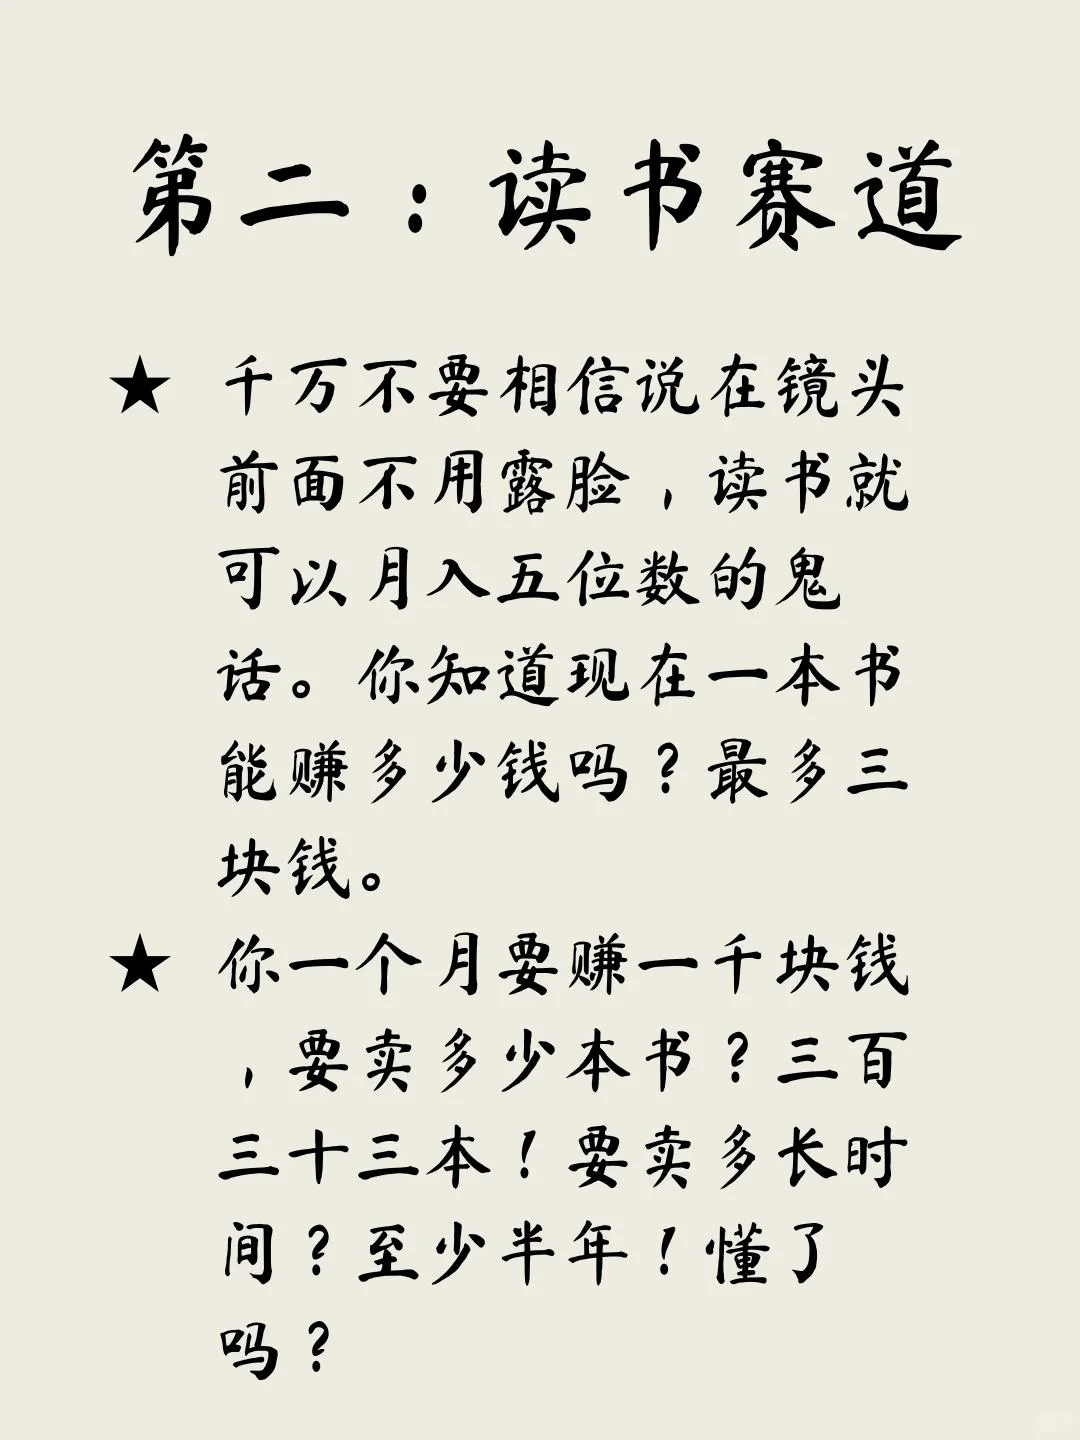 第二：读书赛道
★ 千万不要相信说在镜头
前面不用露脸，读书就
可以月入五位数的鬼
话。你知道现在一本书
能赚多少钱吗？最多三
块钱。
★ 你一个月要赚一千块钱
，要卖多少本书？三百
三十三本！要卖多长时
间？至少半年！懂了
吗？